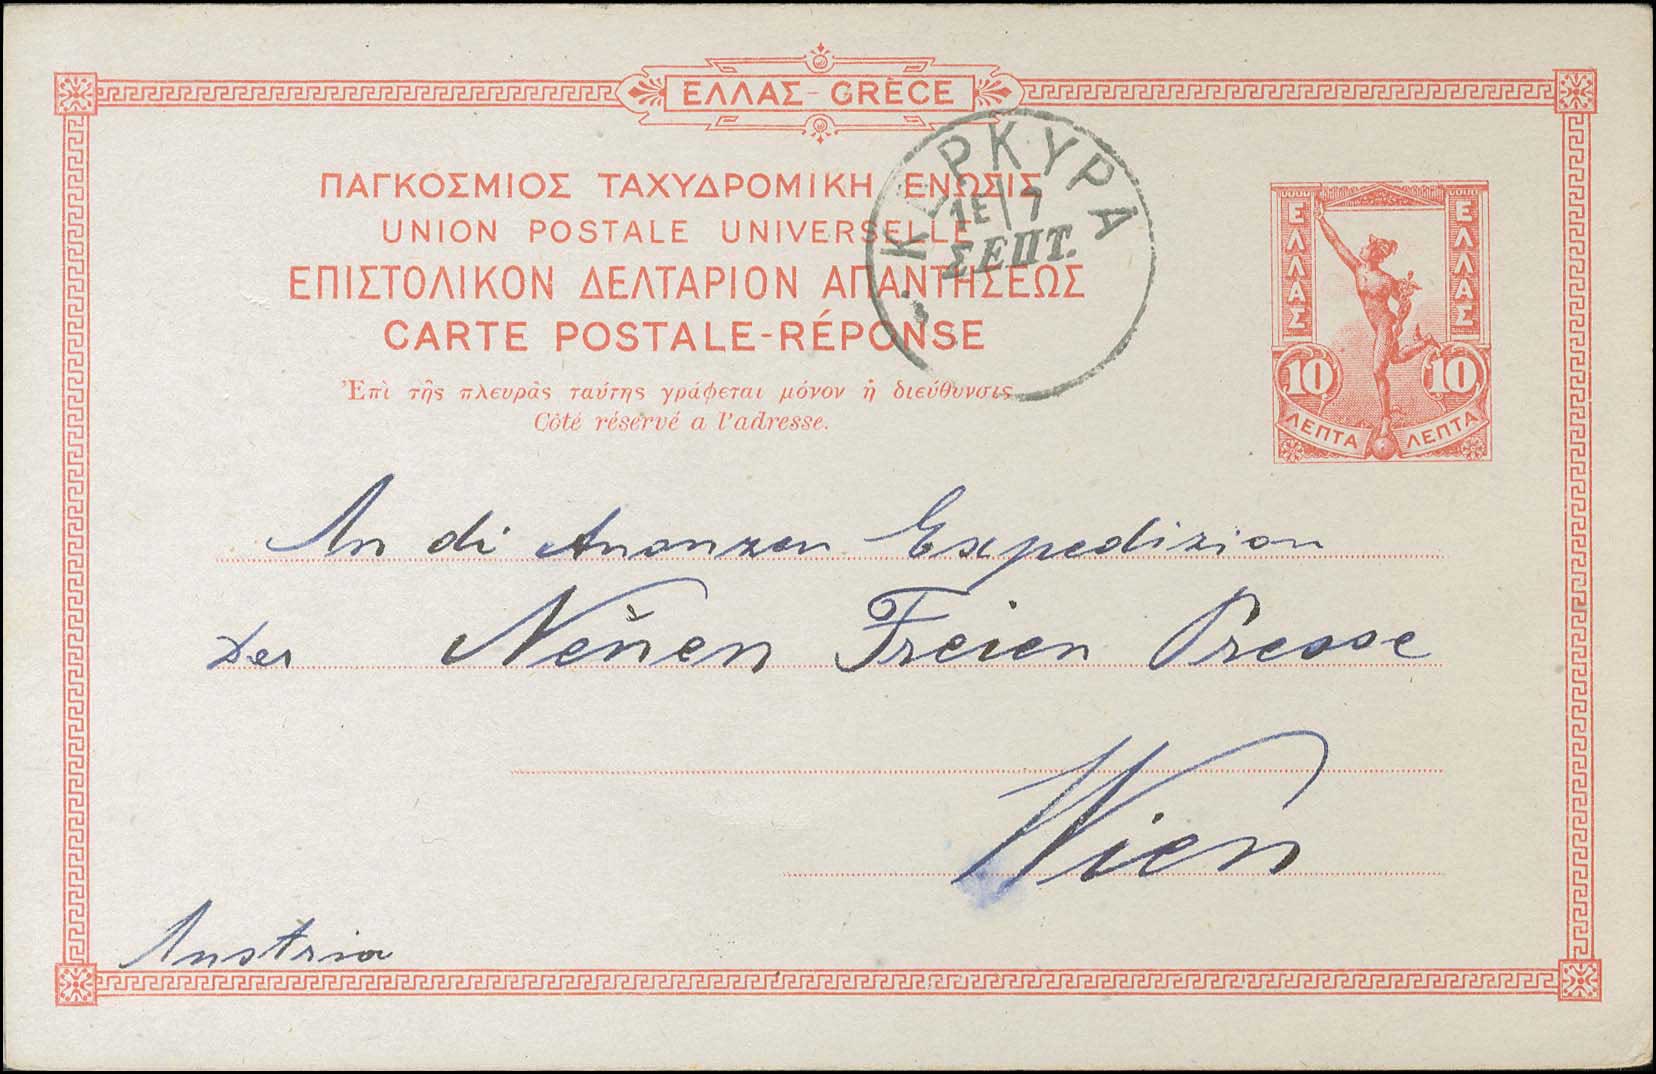 ΕΛΛΑΣ - GRÈCE
ΠΑΓΚΟΣΜΙΟΣ ΤΑΧΥΔΡΟΜΙΚΗ ΕΝΩΣΙΣ
UNION POSTALE UNIVERSELLE
ΕΠΙΣΤΟΛΙΚΟΝ ΔΕΛΤΑΡΙΟΝ ΑΠΑΝΤΗΣΕΩΣ
CARTE POSTALE-RÉPONSE
Ἐπὶ τῆς πλευρᾶς ταύτης γράφεται μόνον ἡ διεύθυνσις
Côté réservé a l'adresse.
ΚΕΡΚΥΡΑ
1Ε/7
ΣΕΠΤ.
ΕΛΛΑΣ
ΕΛΛΑΣ
10
10
ΛΕΠΤΑ
ΛΕΠΤΑ
An di Anonzen Expedizion
Der Neuen Freien Presse
Wien
Austria